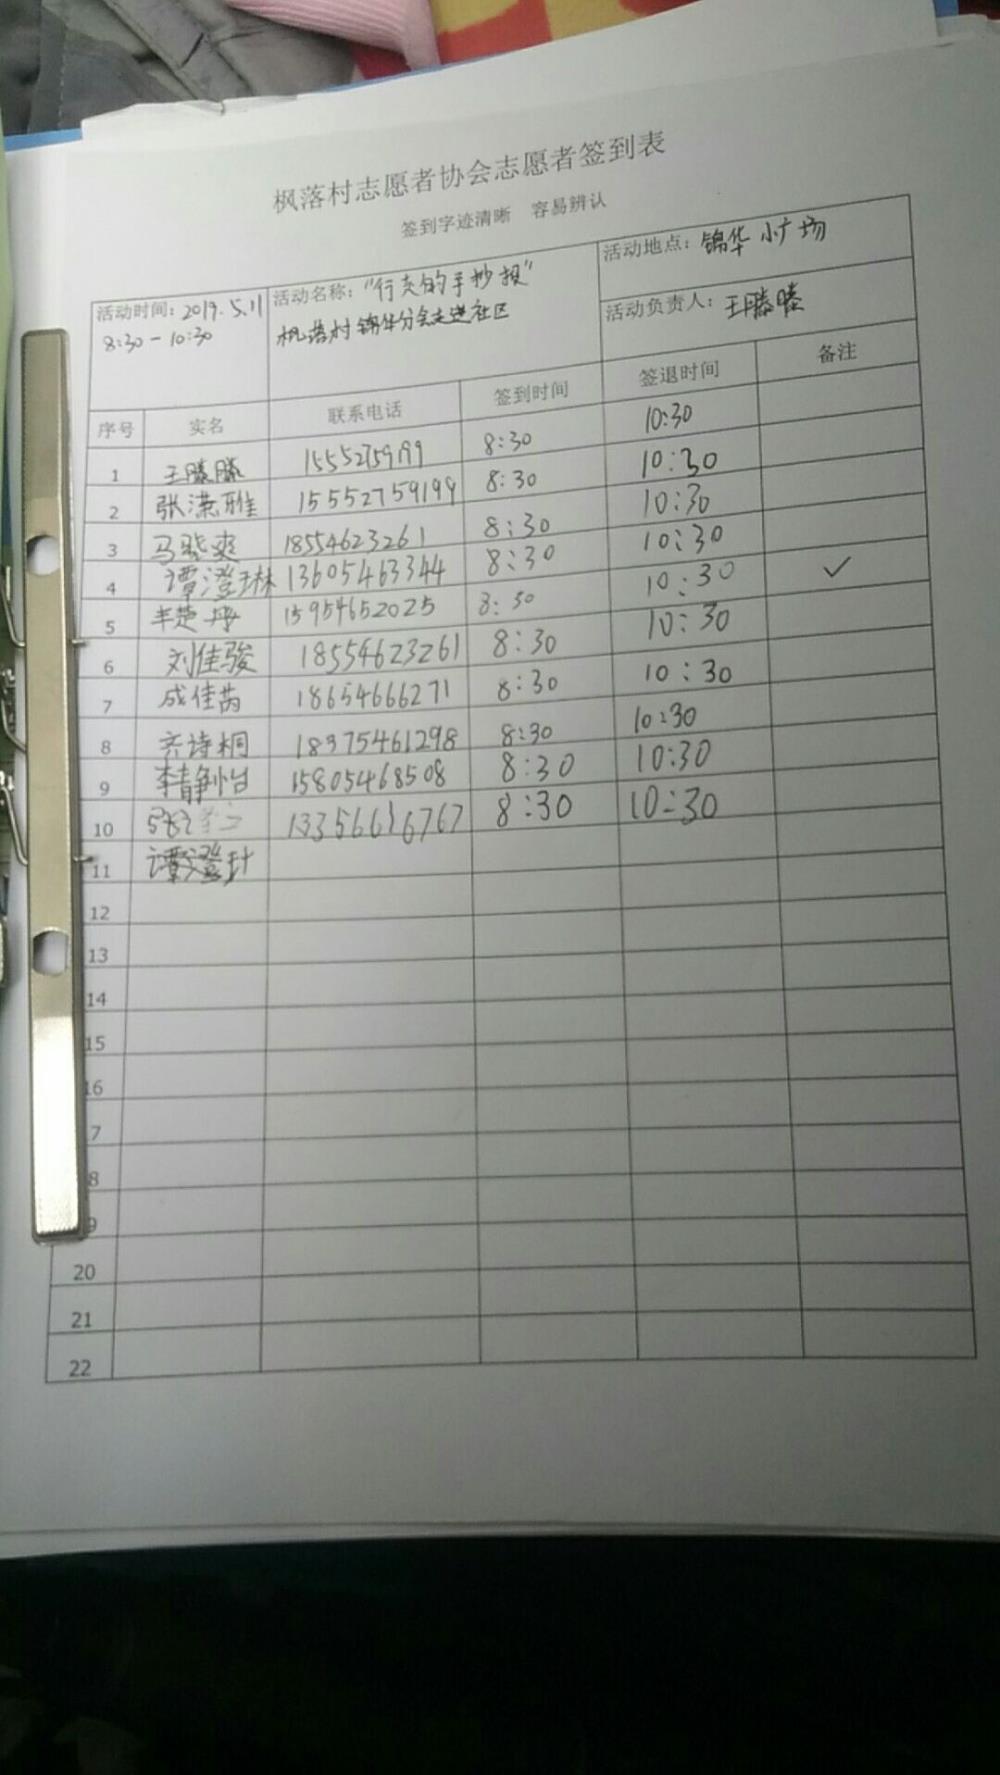 枫落村志愿者协会志愿者签到表
签到字迹清晰 容易辨认
活动时间：2019.5.11
8:30-10:30
活动名称："行走的手抄报"
枫落村锦华分会走进社区
活动地点：锦华小广场
活动负责人：王滕滕
序号 实名 联系电话 签到时间 签退时间 备注
1 王滕滕 15552759199 8:30 10:30
2 张潇雅 15552759199 8:30 10:30
3 马晓爽 18554623261 8:30 10:30
4 谭澄琳 13605463344 8:30 10:30
5 丰楚丹 15954652025 8:30 10:30 ✓
6 刘佳骏 18554623261 8:30 10:30
7 成佳芮 18654666271 8:30 10:30
8 齐诗桐 18375461298 8:30 10:30
9 李静怡 15805468508 8:30 10:30
10 13356616767 8:30 10:30
11 谭澄
12
13
14
15
16
7
8
9
20
21
22